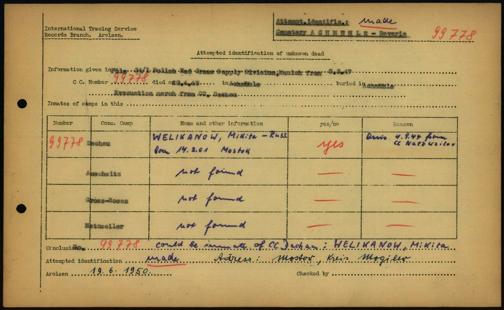 International Tracing Service
Records Branch. Arolsen.
Attempt.identific.: made
Cemetery ACHMUHLE - Bavaria 99778
Attempted identification of unknown dead
Information given in file 31/1 Polish Red Cross Supply Division, Munich from 5.2.47
C.C. Number 99778 died at in buried in
Evacuation march from CC. Dachau
Inmates of camps in this
Number Conc. Camp Name and other information yes/no Reasons
99778 Dachau WELIKANOW, Mikita - Russ. yes
born 14.2.01 Mostok
Auschwitz not found —
Gross-Rosen not found —
Natzweiler not found —
Conclusion No. 99778 could be inmate of CC Dachau: WELIKANOW, Mikita
Attempted identification made Adress: Mostov, Kreis Mogilev
Arolsen 19. 6. 1950. Checked by